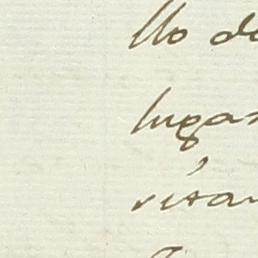 llo de
lugar
vitar